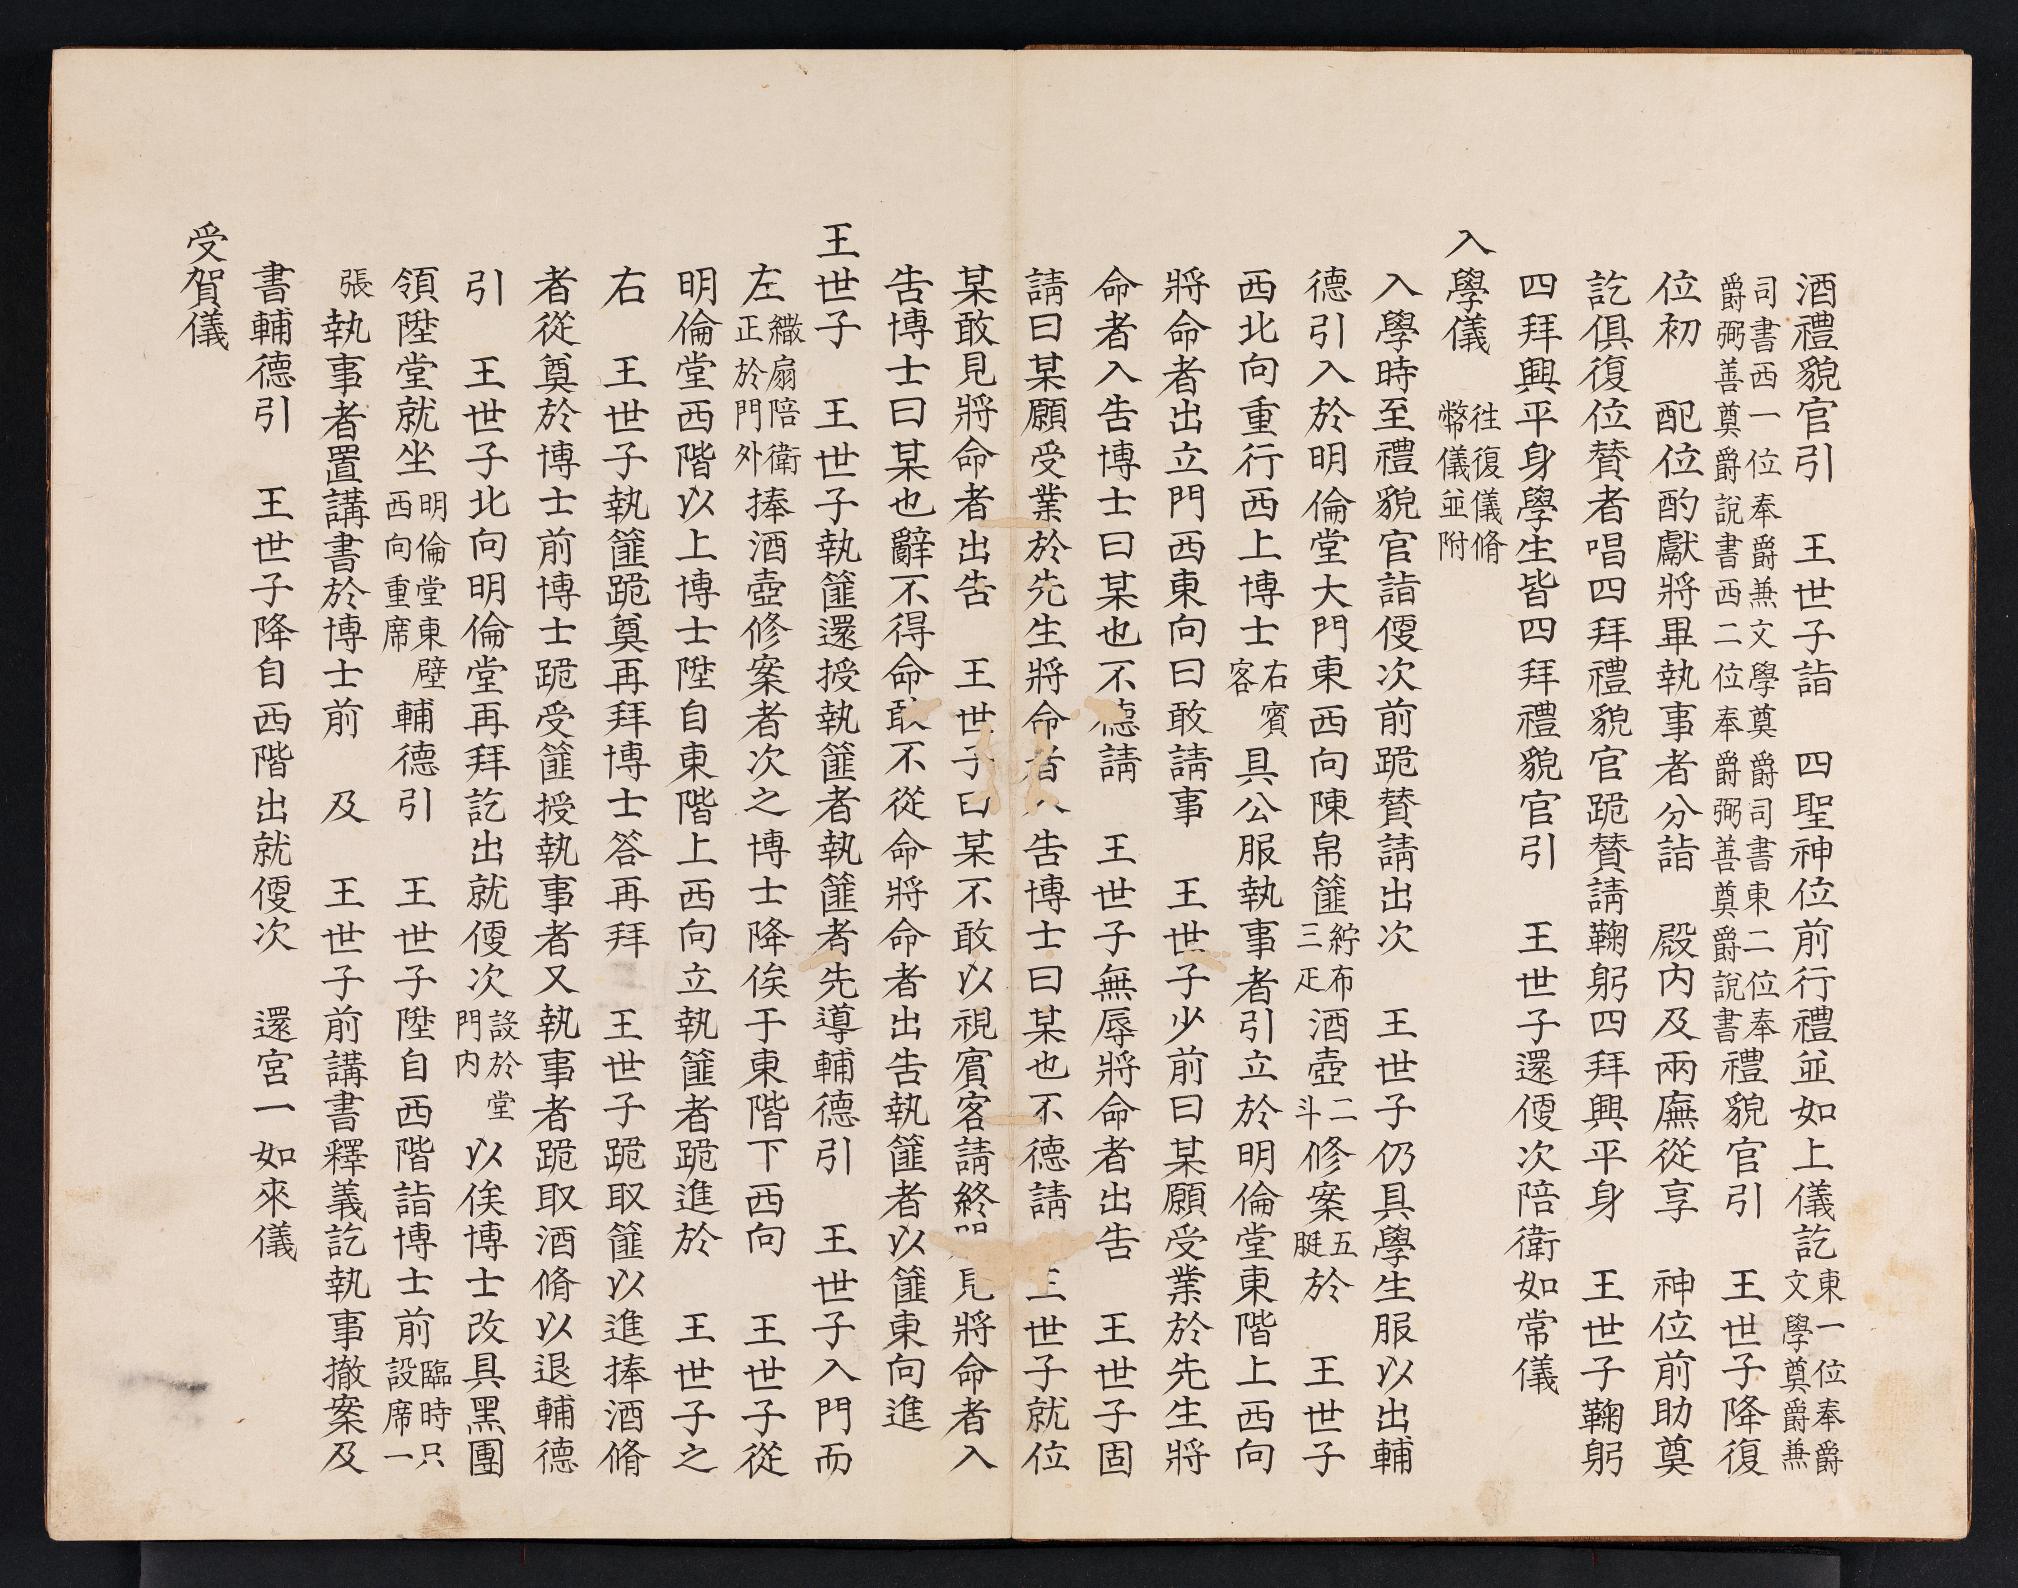 酒禮貌官引　王世子詣　四聖神位前行禮並如上儀訖東一位奉爵文學奠爵兼
司書西一位奉爵兼文學奠爵司書東二位奉爵弼善奠爵說書西二位奉爵弼善奠爵說書禮貌官引　王世子降復
位初　配位酌獻將畢執事者分詣　殿內及兩廡從享　神位前助奠
訖俱復位贊者唱四拜禮貌官跪贊請鞠躬四拜興平身　王世子鞠躬
四拜興平身學生皆四拜禮貌官引　王世子還便次陪衛如常儀
入學儀　往復儀脩幣儀並附
入學時至禮貌官詣便次前跪贊請出次　王世子仍具學生服以出輔
德引入於明倫堂大門東西向陳帛篚紵布三疋酒壺二斗修案五脡於　王世子
西北向重行西上博士右賓客具公服執事者引立於明倫堂東階上西向
將命者出立門西東向曰敢請事　王世子少前曰某願受業於先生將
命者入告博士曰某也不德請　王世子無辱將命者出告　王世子固
請曰某願受業於先生將命者入告博士曰某也不德請　王世子就位
某敢見將命者出告　王世子曰某不敢以視賓客請終見將命者入
告博士曰某也辭不得命敢不從命將命者出告執篚者以篚東向進
王世子　王世子執篚還授執篚者執篚者先導輔德引　王世子入門而
左繖扇陪衛正於門外捧酒壺修案者次之博士降俟于東階下西向　王世子從
明倫堂西階以上博士陞自東階上西向立執篚者跪進於　王世子之
右　王世子執篚跪奠再拜博士答再拜　王世子跪取篚以進捧酒脩
者從奠於博士前博士跪受篚授執事者又執事者跪取酒脩以退輔德
引　王世子北向明倫堂再拜訖出就便次設於堂門內以俟博士改具黑團
領陞堂就坐明倫堂東壁西向重席輔德引　王世子陞自西階詣博士前臨時只設席一
張執事者置講書於博士前　及　王世子前講書釋義訖執事撤案及
書輔德引　王世子降自西階出就便次　還宮一如來儀
受賀儀